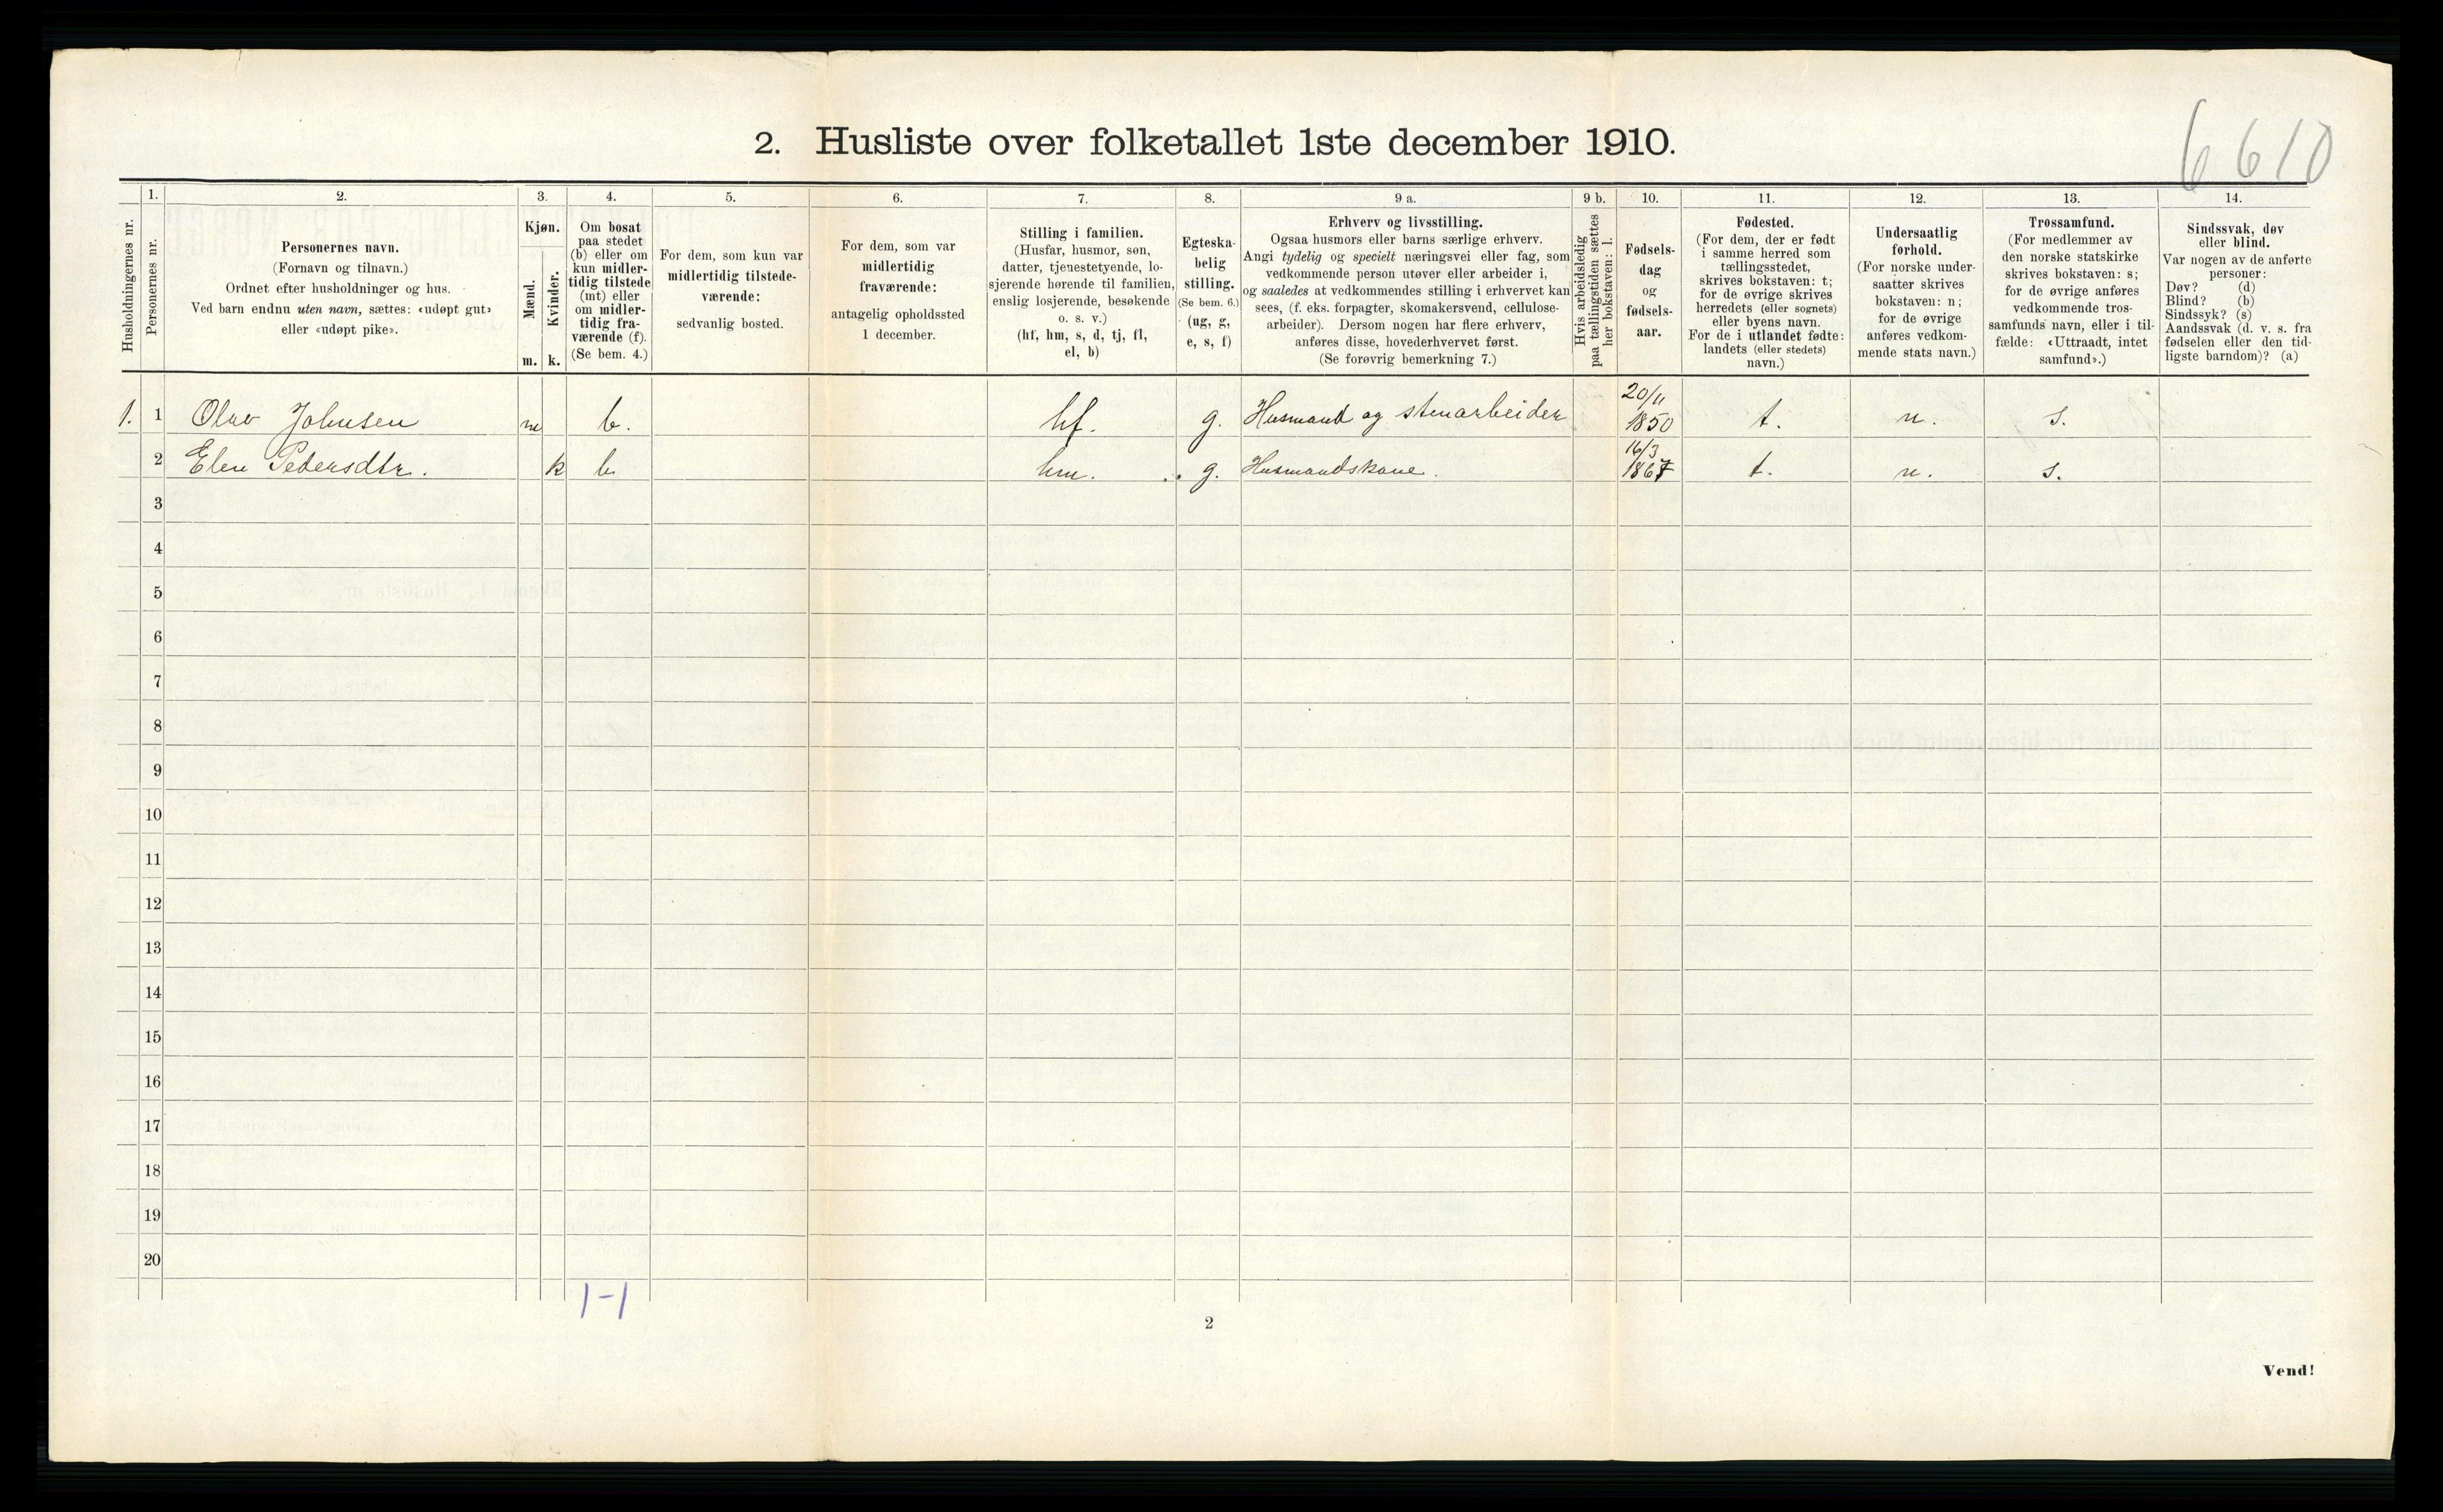 6610
2. Husliste over folketallet 1ste december 1910.
Husholdningernes nr.
1.
Personernes nr.
2.
Personernes navn.
(Fornavn og tilnavn.)
Ordnet efter husholdninger og hus.
Ved barn endnu uten navn, sættes: «udøpt gut»
eller «udøpt pike».
3.
Kjøn.
Mænd.
Kvinder.
m. k.
4.
Om bosat
paa stedet
(b) eller om
kun midler-
tidig tilstede
(mt) eller
om midler-
tidig fra-
værende (f).
(Se bem. 4.)
5.
For dem, som kun var
midlertidig tilstede-
værende:
sedvanlig bosted.
6.
For dem, som var
midlertidig
fraværende:
antagelig opholdssted
1 december.
7.
Stilling i familien.
(Husfar, husmor, søn,
datter, tjenestetyende, lo-
sjerende hørende til familien,
enslig losjerende, besøkende
o. s. v.)
(hf, hm, s, d, tj, fl,
el, b)
8.
Egteska-
belig
stilling.
(Se bem. 6.)
(ug, g,
e, s, f)
9 a.
Erhverv og livsstilling.
Ogsaa husmors eller barns særlige erhverv.
Angi tydelig og specielt næringsvei eller fag, som
vedkommende person utøver eller arbeider i,
og saaledes at vedkommendes stilling i erhvervet kan
sees, (f. eks. forpagter, skomakersvend, cellulose-
arbeider). Dersom nogen har flere erhverv,
anføres disse, hovederhvervet først.
(Se forøvrig bemerkning 7.)
9 b.
Hvis arbeidsledig
paa tællingstiden sættes
her bokstaven: l.
10.
Fødsels-
dag
og
fødsels-
aar.
11.
Fødested.
(For dem, der er født
i samme herred som
tællingsstedet,
skrives bokstaven: t;
for de øvrige skrives
herredets (eller sognets)
eller byens navn.
For de i utlandet fødte:
landets (eller stedets)
navn.)
12.
Undersaatlig
forhold.
(For norske under-
saatter skrives
bokstaven: n;
for de øvrige
anføres vedkom-
mende stats navn.)
13.
Trossamfund.
(For medlemmer av
den norske statskirke
skrives bokstaven: s;
for de øvrige anføres
vedkommende tros-
samfunds navn, eller i til-
fælde: «Uttraadt, intet
samfund».)
14.
Sindssvak, døv
eller blind.
Var nogen av de anførte
personer:
Døv? (d)
Blind? (b)
Sindssyk? (s)
Aandssvak (d. v. s. fra
fødselen eller den tid-
ligste barndom)? (a)
1. 1 Olav Johnsen m b. hf. g. Husmand og stenarbeider 20/11 1850 t. n. s.
2 Elen Pedersdtr. k b hm. g. Husmandskone. 16/3 1867 t. n. s.
3
4
5
6
7
8
9
10
11
12
13
14
15
16
17
18
19
20
1-1
2
Vend!